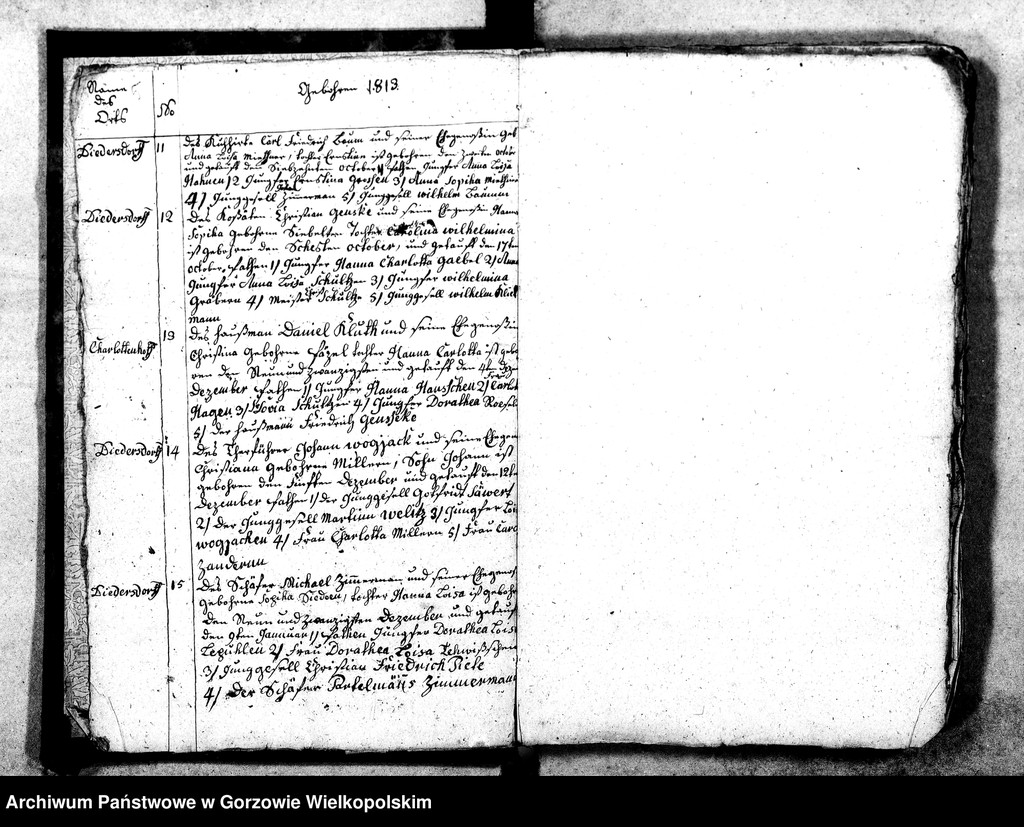 Name
des
Orts
No
Gebohren 1813.
Diedersdorff 11 des Kuhhirte Carl Friedrich Baum und seiner Ehegenoßin Geb
Anna Loisa Miethner, tochter Ernstian ist gebohren den zweiten octobr
und getauft den Siebzehnten october, Pathen Jungfer Anna Loisa
Hahnen 2 Jungfer Ernstina 3) Anna Sopika
4) Junggesell Zimmerman 5) Junggesell wilhelm Baumm
Diedersdorff 12 des Koßäten Christian Genske und seine Ehegenoßin Hanna
Sopika gebohrne Siebelten Tochter Carolina wilhelmina
ist gebohren den Schesten october, und getauft den 17ten
october, Pathen 1) Jungfer Hanna Charlotta Gaebel 2)
Jungfer Anna Loisa Schultzen 3) Jungfer wilhelmina
Gräbern 4) Meister Schultze 5) Junggesell wilhelm Klick
mann
Charlottenhoff 13 des haußman Daniel Kluth und seine Ehegenoßin
Christina Gebohrne tochter Hanna Carlotta ist gebo
ren den Neun und zwanzigsten und getauft den 4ten
Dezember Pathen 1) Jungfer Hanna Hanschen 2) Frau Carlot
Hagen 3) Sovia Schultzen 4) Jungfer Dorathea
5) der haußmann Friedrich Genseke
Diedersdorff 14 des Johann wogjack und seine Ehegen
Christiana Gebohrne Millern, Sohn Johann ist
gebohren den fünften Dezember und getauft den 12t
Dezember Pathen 1) der Junggesell Gotfridt Säwert
2) der Junggesell Martinn welitz 3) Jungfer Loi
wogjacken 4) Frau Charlotta Millern 5) Frau Caro
Zandernn
Diedersdorff 15 des Schäfer Michael Zimmerman und seiner Ehegenoß
gebohrne Sopika Siedern, tochter Hanna Loisa ist gebohr
den Neun und zwanzigsten Dezember und getauf
den 9ten Januuar 1) Pathen Jungfer Dorathea Lois
2) Frau Dorathea Loisa
3) Junggesell Christian Friedrich Tiele
4) der Schäfer Partelmäus Zimmermann
Archiwum Państwowe w Gorzowie Wielkopolskim